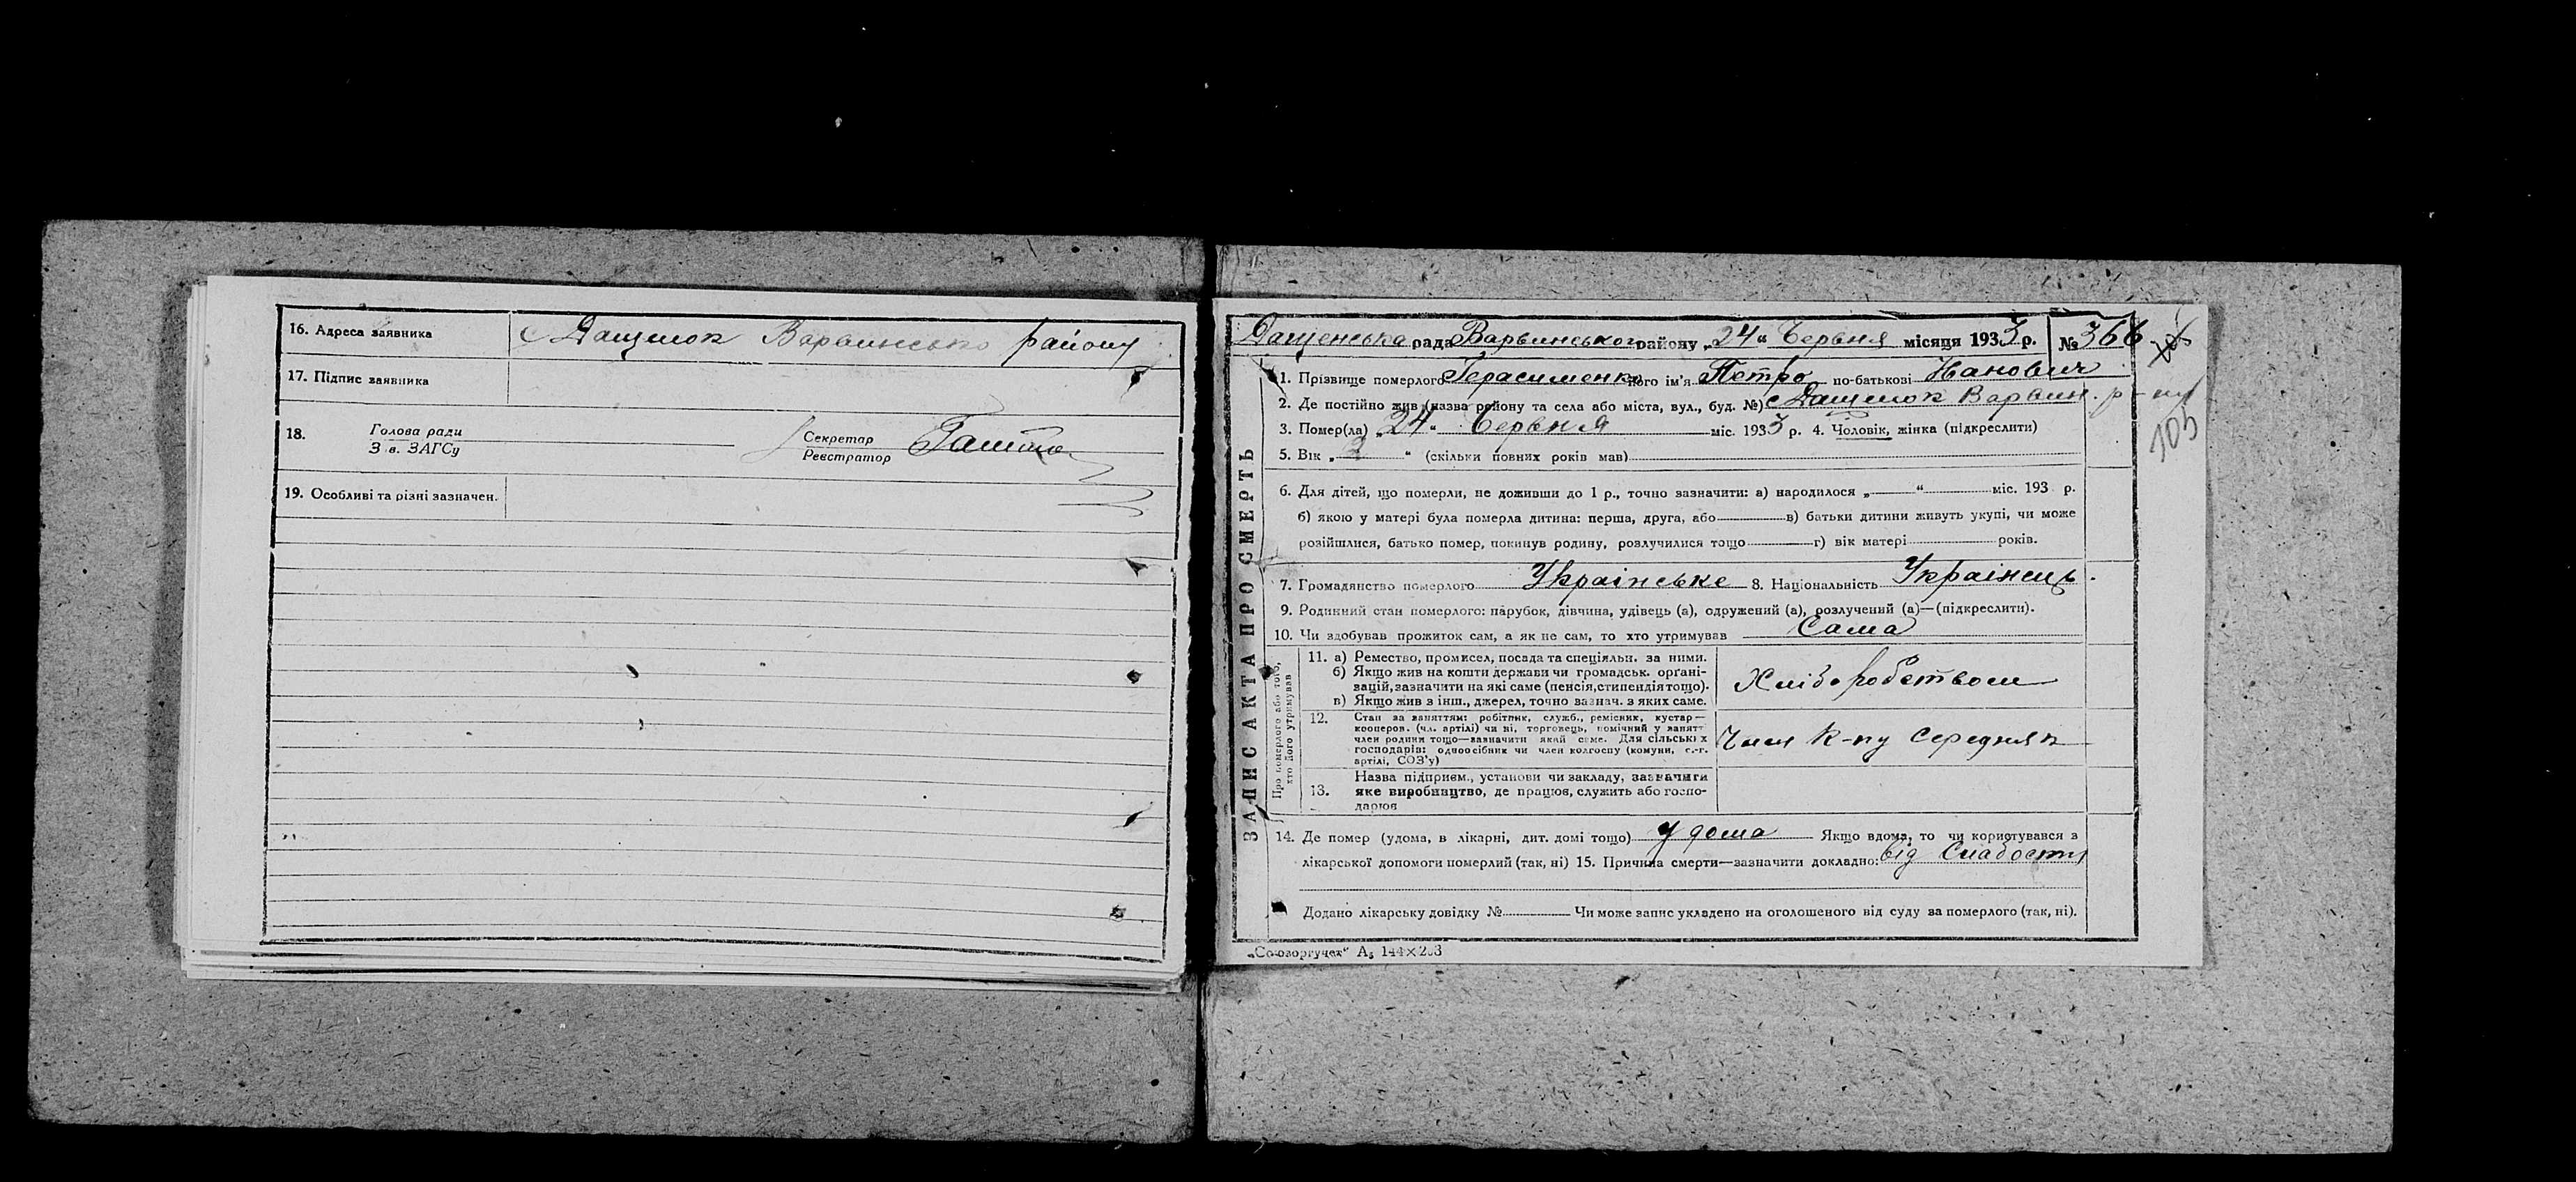 16. Адреса заявника с Дащенок Варвинсько району
17. Підпис заявника
18. Голова ради
З в. ЗАГСу
Секретар
Реєстратор
19. Особливі та різні зазначен.
ЗАПИС АКТА ПРО СМЕРТЬ
Дащенська рада Варвинського району „24“ Червня місяця 1933 р. № 366
1. Прізвище померлого Герасименко його ім'я Петро по-батькові Іванович
2. Де постійно жив (назва району та села або міста, вул., буд. №) с Дащенок Варвин. р-ну
105
3. Помер(ла) „24“ Червня міс. 1933 р. 4. Чоловік, жінка (підкреслити)
5. Вік „3“ (скільки повних років мав)
6. Для дітей, що померли, не доживши до 1 р., точно зазначити: а) народилося „ “ міс. 193 р.
б) якою у матері була померла дитина: перша, друга, або в) батьки дитини живуть укупі, чи може
розійшлися, батько помер, покинув родину, розлучилися тощо г) вік матері років.
7. Громадянство померлого Українське 8. Національність Українець
9. Родинний стан померлого: парубок, дівчина, удівець (а), одружений (а), розлучений (а)—(підкреслити).
10. Чи здобував прожиток сам, а як не сам, то хто утримував Сама
Про померлого або того,
хто його утримував
11. а) Ремество, промисел, посада та спеціяльн. за ними.
б) Якщо жив на кошти держави чи громадськ. органі-
зацій, зазначити на які саме (пенсія, стипендія тощо).
в) Якщо жив з інш., джерел, точно зазнач. з яких саме.
Хліборобством
12. Стан за заняттям: робітник, служб., ремісник, кустар—
кооперов. (чл. артілі) чи ні, торговець, помічний у занятт
член родини тощо—зазначити який саме. Для сільських
господарів: одноосібник чи член колгоспу (комуни, с.-г.
артілі, СОЗ'у)
Член к-пу Середняк
13. Назва підприєм., установи чи закладу, зазначити
яке виробництво, де працюв, служить або госпо-
дарюв
14. Де помер (удома, в лікарні, дит. домі тощо) У дома Якщо вдома, то чи користувався з
лікарської допомоги померлий (так, ні) 15. Причина смерти—зазначити докладно: від Слабости
Додано лікарську довідку № Чи може запис укладено на оголошеного від суду за померлого (так, ні).
„Союзоргучет“ А₅ 144×203